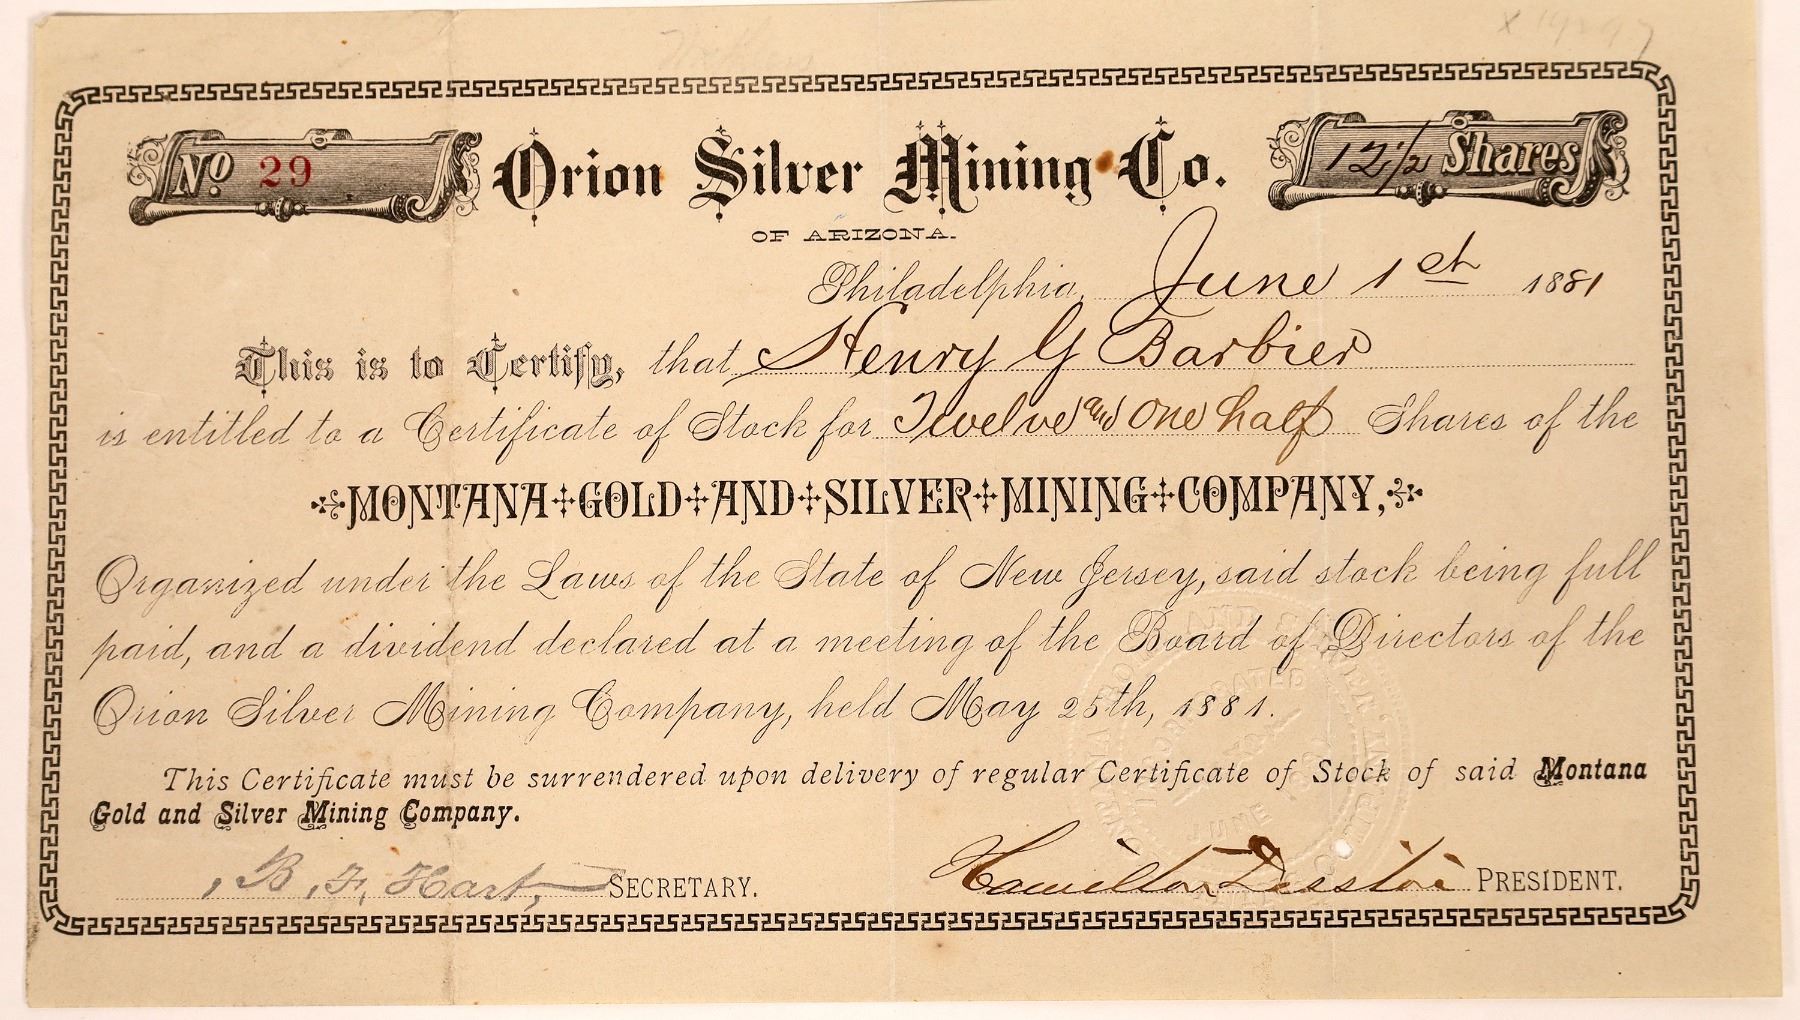 No 29
Orion Silver Mining Co.
12 1/2 Shares
OF ARIZONA.
Philadelphia, June 1st 1881
This is to Certify, that Henry G Barbier
is entitled to a Certificate of Stock for Twelve and One half Shares of the
MONTANA GOLD AND SILVER MINING COMPANY,
Organized under the Laws of the State of New Jersey, said stock being full
paid, and a dividend declared at a meeting of the Board of Directors of the
Orion Silver Mining Company, held May 25th, 1881.
This Certificate must be surrendered upon delivery of regular Certificate of Stock of said Montana
Gold and Silver Mining Company.
B. F. Hart, SECRETARY.
Hamilton Disston PRESIDENT.